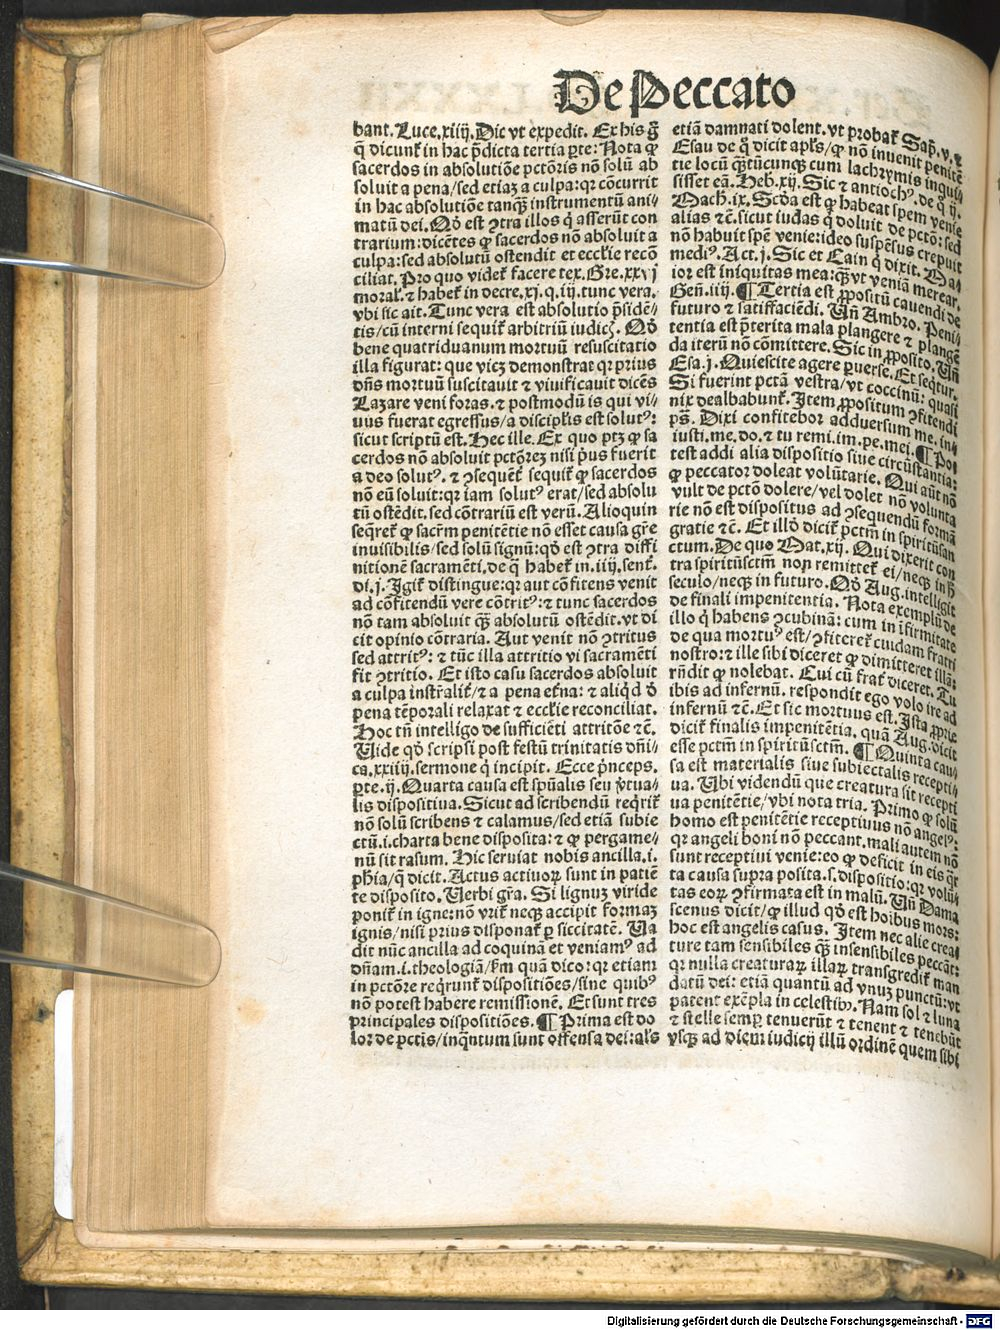 De Peccato
bant. Luce.xiiij. Dic vt expedit. Ex his
q̄ dicunt̄ in hac p̄dicta tertia ꝑte: Nota ꝙ
sacerdos in absolutiōe pctōris nō solū ab
soluit a pena/sed etiaꝫ a culpa: qꝛ cōcurrit
in hac absolutiōe tanqꝫ instrumentū ani/
matū dei. Qd̄ est ꝯtra illos q̇ asserūt con
trarium: dicētes ꝙ sacerdos nō absoluit a
culpa: sed absolutū ostendit et eccl̄ie recō
ciliat. Pro quo videt̄ facere tex. Gre. xxvj
moral. ⁊ habet̄ in decre. xj. q. iij. tunc vera.
vbi sic ait. Tunc vera est absolutio p̄sidē/
tis/cū interni sequit̄ arbitriū iudicꝭ. Qd̄
bene quatriduanum mortuū resuscitatio
illa figurat: que viꝫ demonstrat qꝛ prius
dn̄s mortuū suscitauit ⁊ viuificauit dicēs
Lazare veni foras. ⁊ postmodū is qui vi/
uus fuerat egressus/a discipl̄is est solutꝰ:
sicut scriptū est. Hec ille. Ex quo ptꝫ ꝙ sa
cerdos nō absoluit pctōreꝫ nisi p̄us fuerit
a deo solutꝰ. ⁊ ꝯsequēt̄ sequit̄ ꝙ sacerdos
nō eū soluit: qꝛ iam solutꝰ erat/sed absolu
tū ostēdit. sed cōtrariū est verū. Alioquin
seq̄ret̄ ꝙ sacrm̄ penitētie nō esset causa gr̄e
inuisibilis/sed solū signū: qd̄ est ꝯtra diffi
nitionē sacramēti. de q̇ habet̄ in. iiij. sent̄.
di. j. Igit̄ distingue: qꝛ aut cōfitens venit
ad cōfitendū vere cōtritꝰ: ⁊ tunc sacerdos
nō tam absoluit qꝫ absolutū ostēdit. vt di
cit opinio cōtraria. Aut venit nō ꝯtritus
sed attritꝰ: ⁊ tūc illa attritio vi sacramēti
fit ꝯtritio. Et isto casu sacerdos absoluit
a culpa instr̄alit̄/⁊ a pena et̄na: ⁊ aliqd̄ d̄
pena tēporali relaxat ⁊ eccl̄ie reconciliat.
Hoc tn̄ intelligo de sufficiēti attritōe ⁊c̄.
Vide qd̄ scripsi post festū trinitatis dn̄i/
ca. xxiiij. sermone q̇ incipit. Ecce p̄nceps.
ꝑte. ij. Quarta causa est spūalis seu
lis dispositiua. Sicut ad scribendū reqrit̄
nō solū scribens ⁊ calamus/sed etiā subie
ctū. i. charta bene disposita: ⁊ ꝙ pergame/
nū sit rasum. Hic seruiat nobis ancilla. i.
ph̄ia/q̄ dicit. Actus actiuoꝝ sunt in patiē
te disposito. Verbi gr̄a. Si lignuꝫ viride
ponit̄ in igne: nō vrit̄ neqꝫ accipit formaꝫ
ignis/nisi prius disponat̄ ꝑ siccitatē. Va
dit nūc ancilla ad coquinā et veniamꝰ ad
dn̄am. i. theologiā/fm̄ quā dico: qꝛ etiam
in pctōre reqrunt̄ dispositiōes/sine quibꝰ
nō potest habere remissionē. Et sunt tres
principales dispositiōes. ¶ Prima est do
lor de pctis/inqꝫntum sunt offensa dei: al's
etiā damnati dolent. vt probat̄ Sap. v. ⁊
Esau de q̇ dicit apl's/ꝙ nō inuenit penitē
tie locū qꝫtūcunqꝫ cum lachrymis inqui/
sisset eā. Heb. xij. Sic ⁊ antiochꝰ. de q̇ ij.
Mach. ix. Scd̄a est ꝙ habeat spem venie
alias ⁊c̄. sicut iudas q̇ doluit de pctō: sed
nō habuit spē venie: ideo suspēsus crepuit
mediꝰ. Act. j. Sic et Cain q̇ dixit. Ma/
ior est iniquitas mea: qꝫ vt veniā merear.
Gen̄. iiij. ¶ Tertia est ꝓpositū cauendi de
futuro ⁊ satisfaciēdi. Vn̄ Ambro. Peni/
tentia est p̄terita mala plangere ⁊ plangē
da iterū nō cōmittere. Sic in ꝓposito. Vn̄
Esa. j. Quiescite agere ꝑuerse. Et seqtur.
Si fuerint pctā vestra/vt coccinū: quasi
nix dealbabunt̄. Item ꝓpositum ꝯfitendi
pꝰ. Dixi confitebor aduersum me. in/
iusti. me. do. ⁊ tu remi. im. pe. mei. ¶ Po/
test addi alia dispositio siue circūstantia:
ꝙ peccator doleat volūtarie. Qui aūt nō
vult de pctō dolere/vel dolet nō volunta
rie nō est dispositus ad ꝯsequendū formā
gratie ⁊c̄. Et illd̄ dicit̄ pctm̄ in spiritūsan
ctum. De quo Mat. xij. Qui dixerit con
tra spiritūsctm̄ non remittet̄ ei/neqꝫ in h̄
seculo/neqꝫ in futuro. Qd̄ Aug. intelligit
de finali impenitentia. Nota exemplū de
illo q̇ habens ꝯcubinā: cum in īfirmitate
de qua mortuꝰ est/ꝯfiteret̄ cuidam fratri
nostro: ⁊ ille sibi diceret ꝙ dimitteret illā:
rn̄dit ꝙ nolebat. Cui cū frat̄ diceret. Tu
ibis ad infernū. respondit ego volo ire ad
infernū ⁊c̄. Et sic mortuus est. Ista ꝓprie
dicit̄ finalis impenitētia. quā Aug. dicit
esse pctm̄ in spiritūsctm̄. ¶ Quinta cau/
sa est materialis siue subiectalis recepti/
ua. Vbi videndū que creatura sit recepti
ua penitētie/vbi nota tria. Primo ꝙ solū
homo est penitētie receptiuus nō angelꝰ:
qꝛ angeli boni nō peccant. mali autem nō
sunt receptiui venie: eo ꝙ deficit in eis qr̄
ta causa supra posita. s. dispositio: qꝛ volū/
tas eoꝝ ꝯfirmata est in malū. Vn̄ Dama
scenus dicit/ꝙ illud qd̄ est hoībus mors:
hoc est angelis casus. Item nec alie crea/
ture tam sensibiles qꝫ insensibiles peccāt:
qꝛ nulla creaturaꝝ illaꝝ transgredit̄ man
datū dei: etiā quantū ad vnuꝫ punctū: vt
patent exēpla in celestibꝰ. Nam sol ⁊ luna
⁊ stelle semꝑ tenuerūt ⁊ tenent ⁊ tenebūt
vsqꝫ ad diem iudicij illū ordinē quem sibi
Digitalisierung gefördert durch die Deutsche Forschungsgemeinschaft - DFG